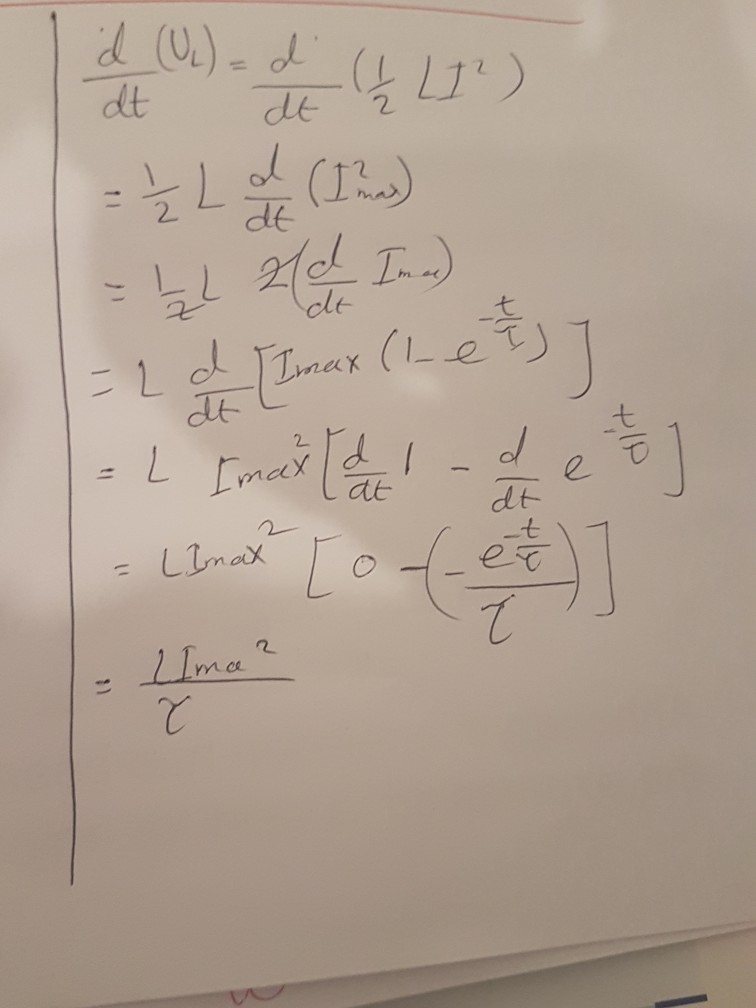 d/dt (U_L) = d/dt (1/2 LI²)
= 1/2 L d/dt (I²max)
= 1/2 L 2(d/dt Imax)
= L d/dt [Imax (1 - e^(-t/τ))]
= L Imax² [d/dt 1 - d/dt e^(-t/τ)]
= LImax² [0 - (- e^(-t/τ)/τ)]
= LIma²/τ